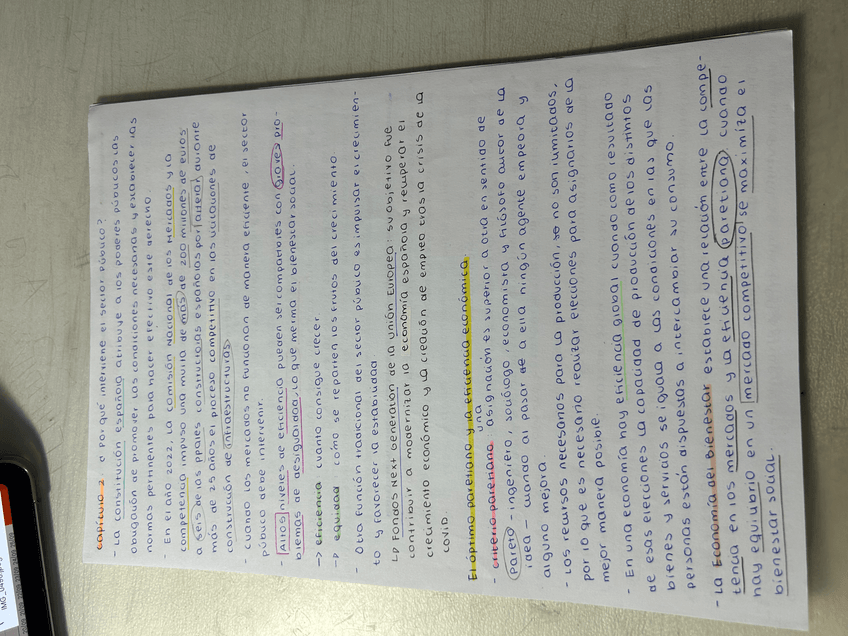 capítulo 2: ¿Por qué interviene el sector público?
- La constitución Española atribuye a los poderes públicos las
obligación de promover las condiciones necesarias y establecer las
normas pertinentes para hacer efectivo este derecho.
- En el año 2022, La comisión Nacional de los Mercados y la
competencia impuso una multa de más de 200 millones de euros
a seis de las ppales constructoras españolas por alterar durante
más de 25 años el proceso competitivo en las licitaciones de
construcción de infraestructuras
- cuando los mercados no funcionan de manera eficiente, el sector
público debe intervenir.
- Altos niveles de eficiencia pueden ser compatibles con graves pro-
blemas de desigualdad, lo que merma el bienestar social.
-> eficiencia cuánto consigue crecer.
-> equidad cómo se reparten los frutos del crecimiento
- Otra función tradicional del sector público es impulsar el crecimien-
to y favorecer la estabilidad
Lp Fondos Next Generation de la unión Europea: su objetivo fue
contribuir a modernizar la economía española y recuperar el
crecimiento económico y la creación de empleo tras la crisis de la
covid.
El óptimo paretiano y la eficiencia económica.
- criterio paretiano: una asignación es superior a otra en sentido de
Pareto - ingeniero, sociólogo, economista y filósofo autor de la
idea - cuando al pasar de a ella ningún agente empeora y
alguno mejora.
- Los recursos necesarios para la producción, se no son ilimitados,
por lo que es necesario realizar elecciones para asignarlos de la
mejor manera posible.
- En una economía hay eficiencia global cuando como resultado
de esas elecciones la capacidad de producción de los distintos
bienes y servicios se iguala a las condiciones en las que las
personas están dispuestas a intercambiar su consumo.
- La Economía del bienestar establece una relación entre la compe-
tencia en los mercados y la eficiencia paretiana: cuando
hay equilibrio en un mercado competitivo se maximiza el
bienestar social.